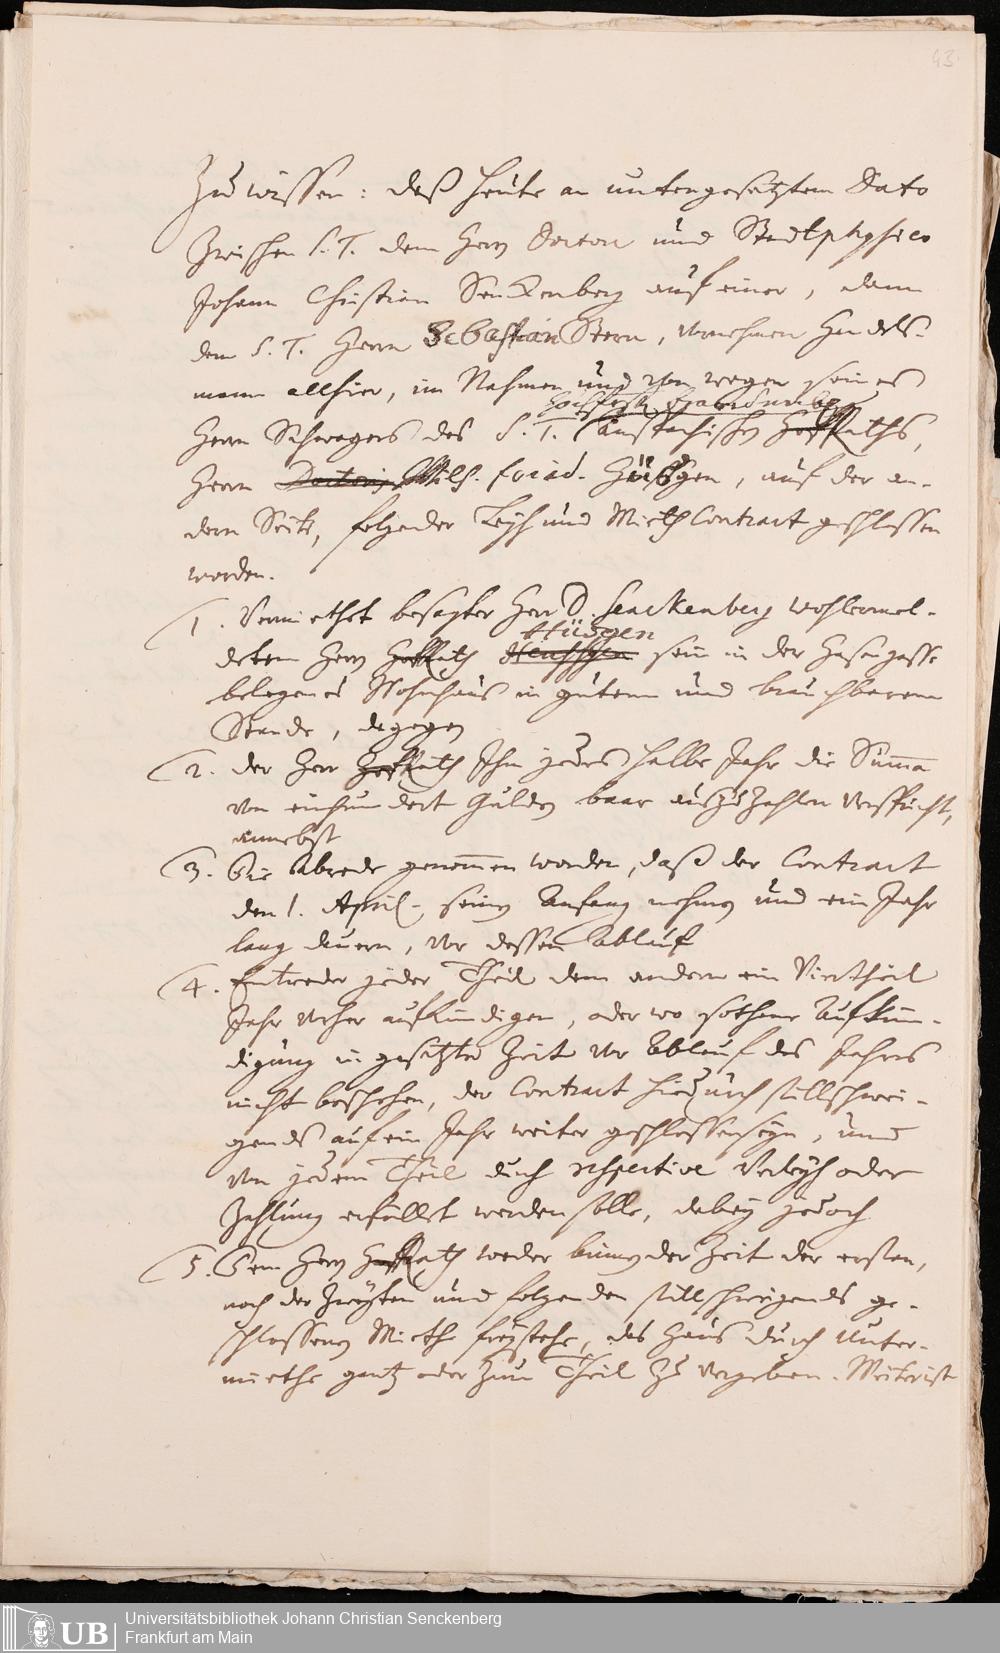 43.
Zu wissen: daß heute an untengesetztem Dato
zwischen S. T. dem Herrn Doctori und Stadtphysico
Johann Christian Senckenberg auf einer, dann
dem S. T. Herrn Sebastian Stern, vornehmen Handels-
mann allhier, im Nahmen und von wegen seines
Hochfürstl.
Herrn Schwagers des S. T. Hoff Raths,
Herrn Doctoris Wilh. Fried. Hüßgen, auf der an-
dern Seite, folgender Leyh und Mieth Contract geschlossen
worden.
1. Vermiethet besagter Herr D. Senckenberg wohlermel-
Hüsgen
detem Herrn HoffRath sein in der Hasengasse
belegenes Wohnhaus in gutem und brauchbarem
Stande, dagegen
2. der Herr HoffRath Ihm jedes halbe Jahr die Summa
von einhundert Gulden baar auszuzahlen verspricht,
annebst
3. Die Abrede genommen worden, daß der Contract
den 1. April. seinen Anfang nehmen und ein Jahr
lang dauern, vor dessen Ablauf
4. Entweder jeder Theil dem andern ein Viertheil
Jahr vorher aufkündigen, oder wo sothane Aufkün-
digung in gesetzter Zeit vor Ablauf des Jahres
nicht beschehen, der Contract hierdurch stillschwei-
gends auf ein Jahr weiter geschlossen seyn, und
von jedem Theil durch respective Verleyh oder
Zahlung erfüllet werden solle, dabey jedoch
5. Dem Herrn HoffRath weder binnen der Zeit der ersten,
noch der zweyten und folgenden stillschweigends ge-
schlossenen Miethe freystehe, das Haus durch Unter-
miethe gantz oder zum Theil zu vergeben. Weiter ist
UB
Universitätsbibliothek Johann Christian Senckenberg
Frankfurt am Main